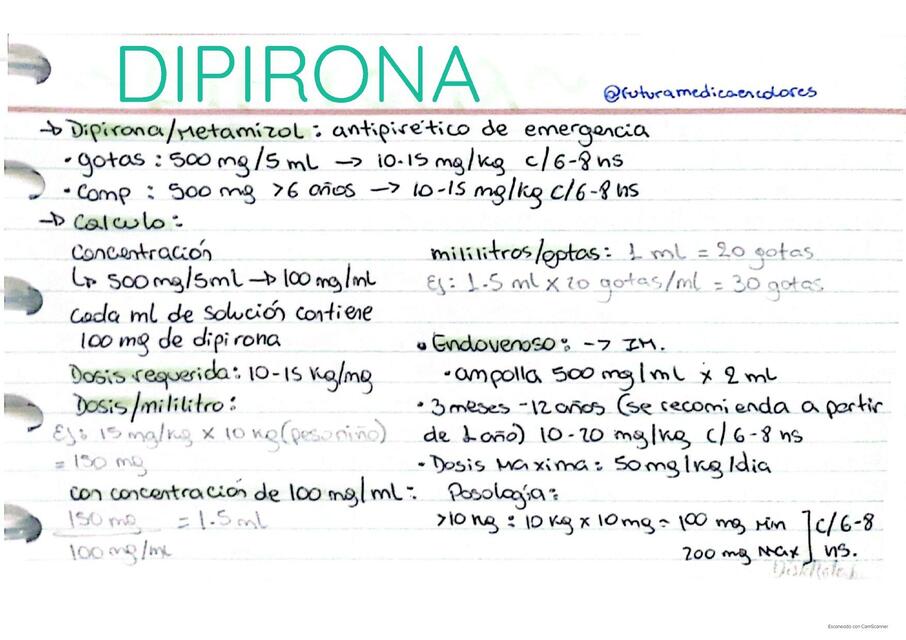 DIPIRONA
@futuramedicaencolores
→ Dipirona/Metamizol: antipirético de emergencia
• gotas: 500 mg/5 ml → 10-15 mg/kg c/6-8 hs
• Comp: 500 mg >6 años → 10-15 mg/kg c/6-8 hs
→ Calculo:
Concentración
↳ 500mg/5ml → 100 mg/ml
Cada ml de solución contiene
100 mg de dipirona
Dosis requerida: 10-15 Kg/mg
Dosis/mililitro:
Ej: 15 mg/kg x 10 kg (peso niño)
= 150 mg
con concentración de 100 mg/ml:
150 mg = 1.5 ml
100 mg/ml
mililitros/gotas: 1 ml = 20 gotas
Ej: 1.5 ml x 20 gotas/ml = 30 gotas
• Endovenoso: -> IM.
• ampolla 500 mg/ml x 2 ml
• 3 meses - 12 años (se recomienda a partir
de 1 año) 10-20 mg/kg c/6-8 hs
• Dosis Maxima: 50 mg/kg/dia
Posología:
>10 kg: 10 kg x 10 mg = 100 mg Min ] c/6-8
200 mg Max ] hs.
Escaneado con CamScanner